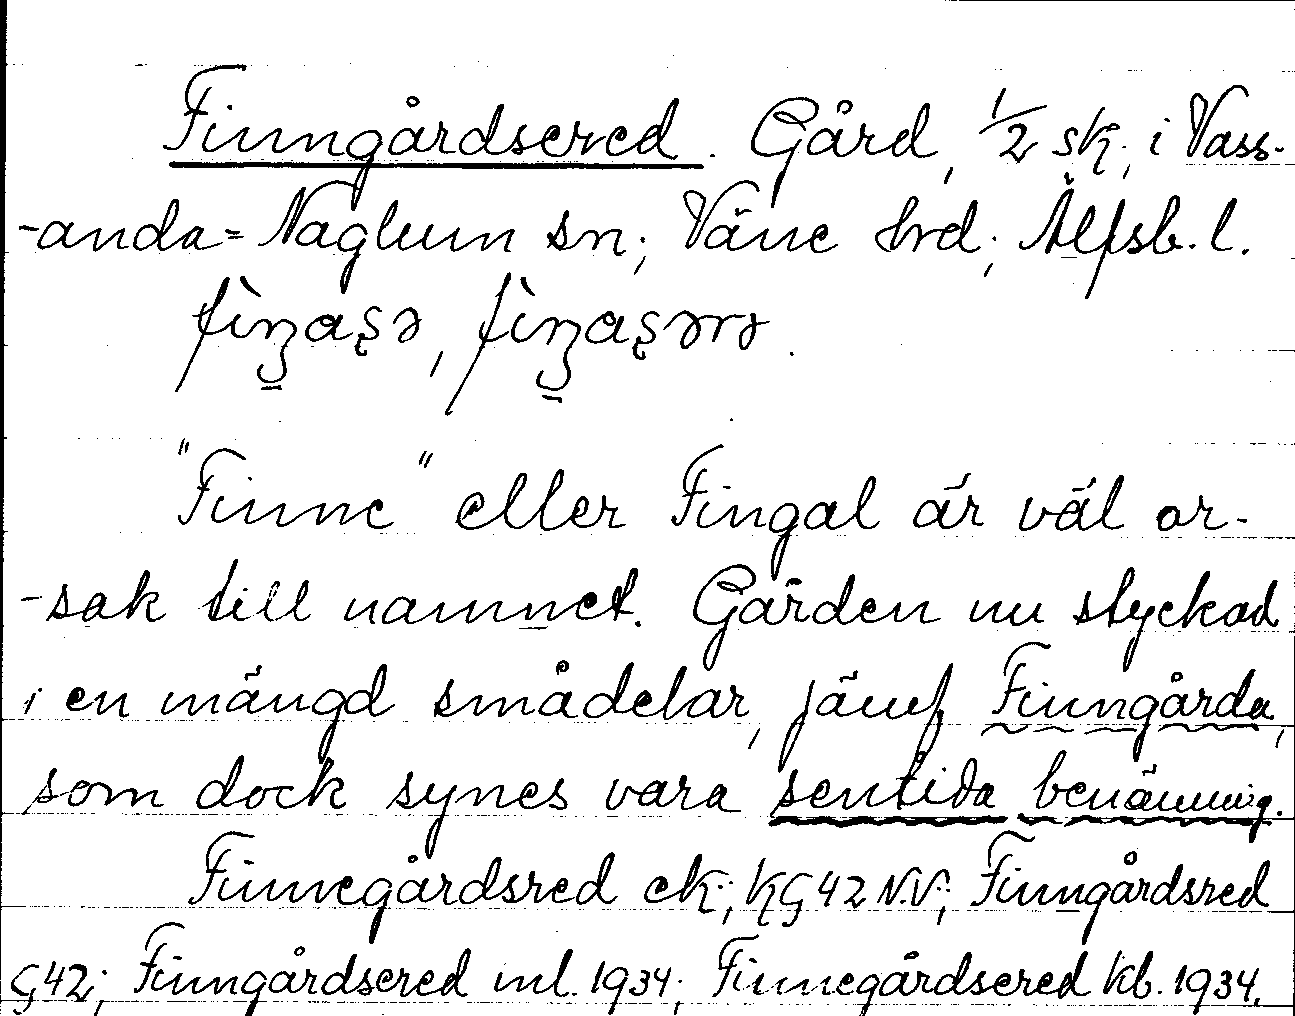 Finngårdsered. Gård, 1/2 sk., i Vass-
-anda=Naglum sn; Väne hrd; Älfsb. l.
"Finne" eller Fingal är väl or-
-sak till namnet. Gården nu styckad
i en mängd smådelar, jämf Finngårda,
som dock synes vara sentida benämning.
Finnegårdsred ek; KG42 N.V; Finngårdsred
G42; Finngårdsered ml. 1934; Finnegårdsered kb. 1934.